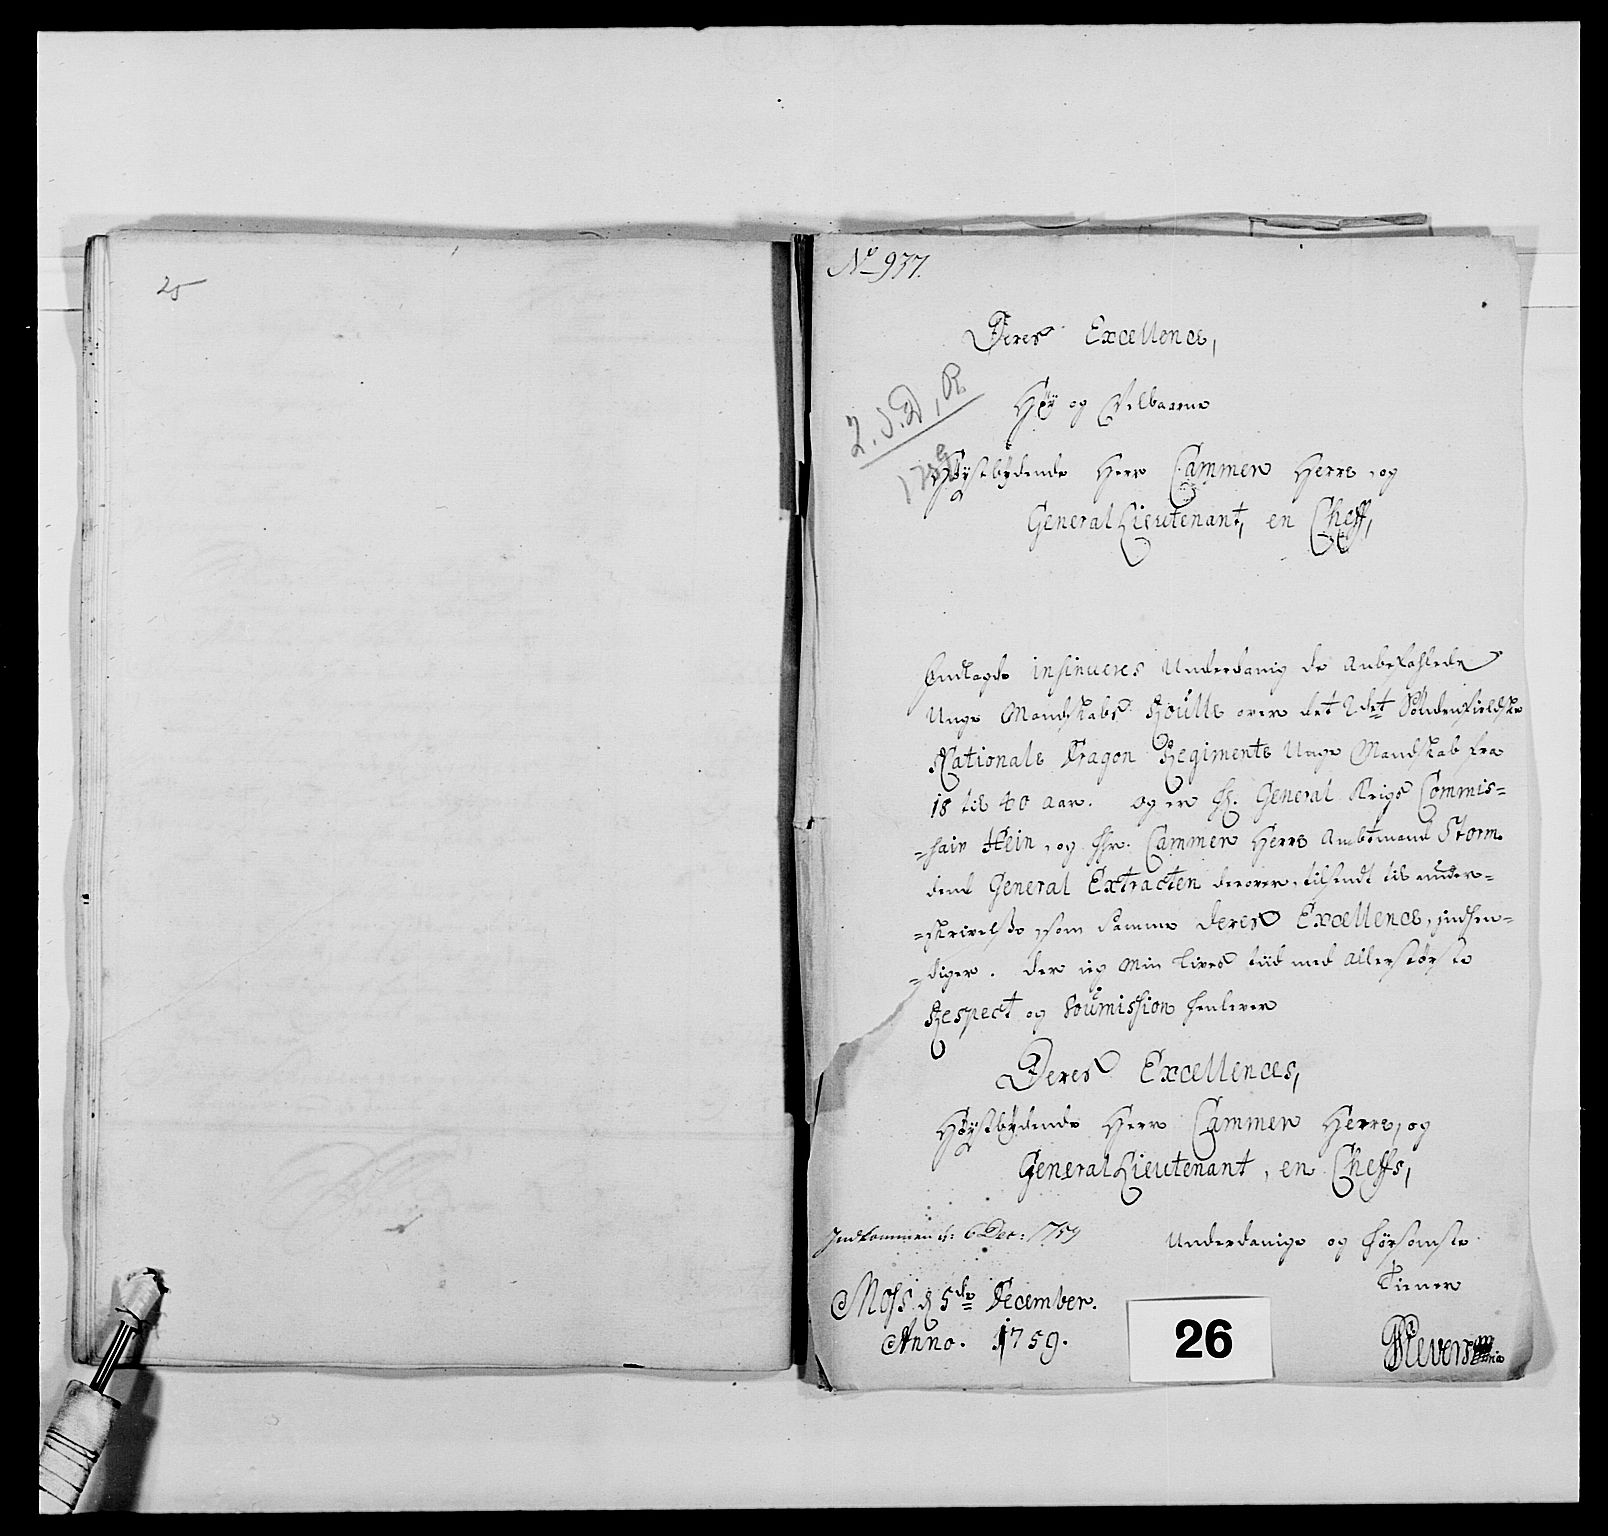 25
No 937.
Deres Excellence,
Høy og Velbaarne
2. S. D. R.
1759
Høystbydende Herr Cammer Herre og
General Lieutenant, en Cheff,
Indlagde insinueres Underdanig de Anbefahlede
Unge Mandskabs Roulle over det 2det Söndenfieldske
Nationale Dragon Regiments Unge Mandskab fra
18 til 40 aar. Og er H. General Krigs Commis=
=sair Hein, og Hr. Cammer Herre Ambtmand Storm
den General Extracten derover, tilsendt til under=
=skrivelse, som samme Deres Excellence, indsen=
=diger. der ieg Min Lives tiid med Allerstørste
Respect og Soumission henlever
Deres Excellences,
Høystbydende Herr Cammer Herre, og
General Lieutenant, en Cheffs,
Indkommen d: 6 Dec: 1759
Underdanige og hørsomste
Tiener
Moss d 5de December.
Anno. 1759.
26